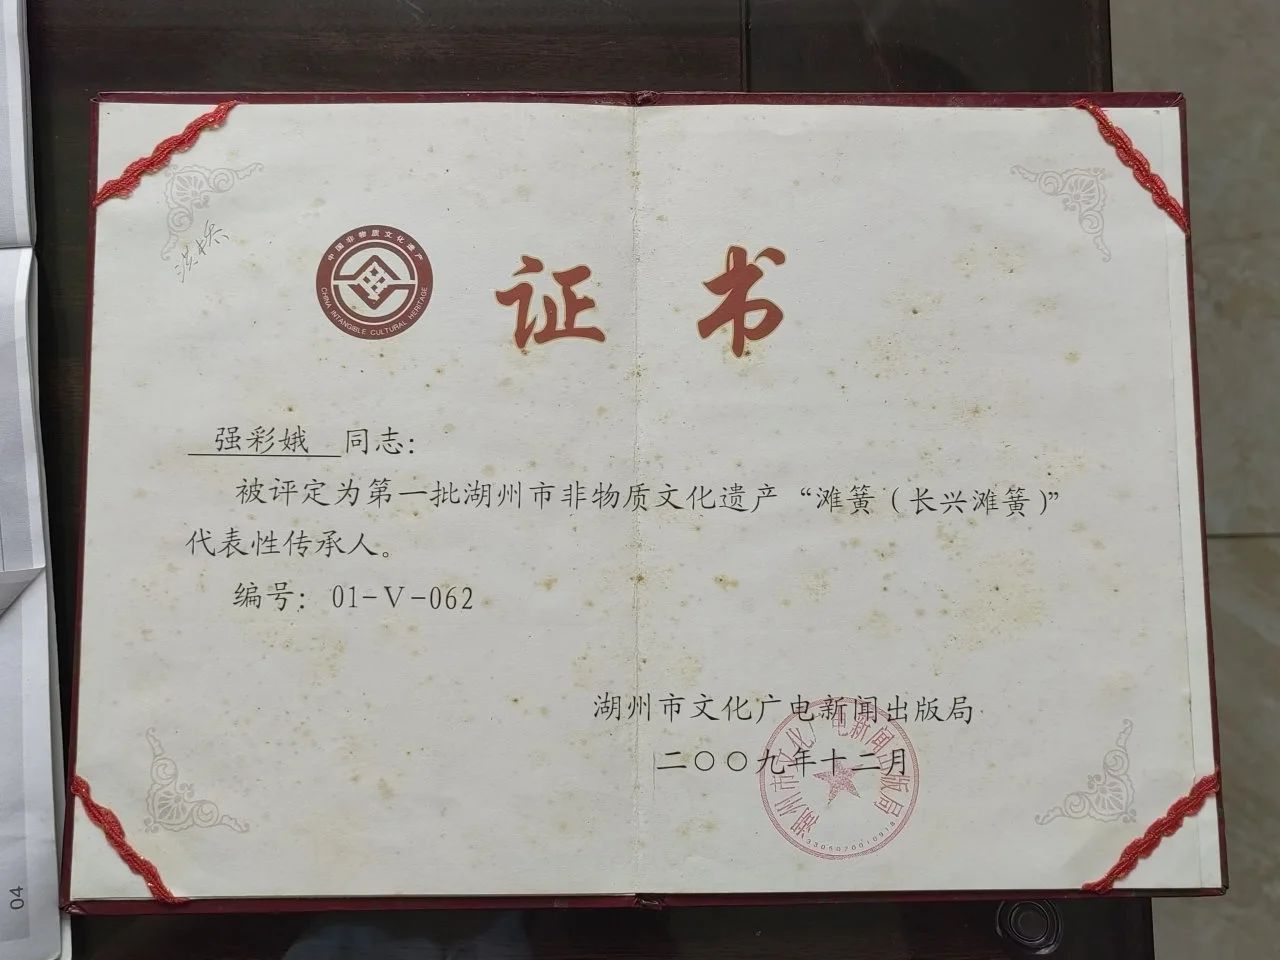 中国非物质文化遗产
CHINA INTANGIBLE CULTURAL HERITAGE
证书
强彩娥 同志：
被评定为第一批湖州市非物质文化遗产“滩簧（长兴滩簧）”
代表性传承人。
编号： 01-V-062
湖州市文化广电新闻出版局
二〇〇九年十二月
湖州市文化广电新闻出版局
04